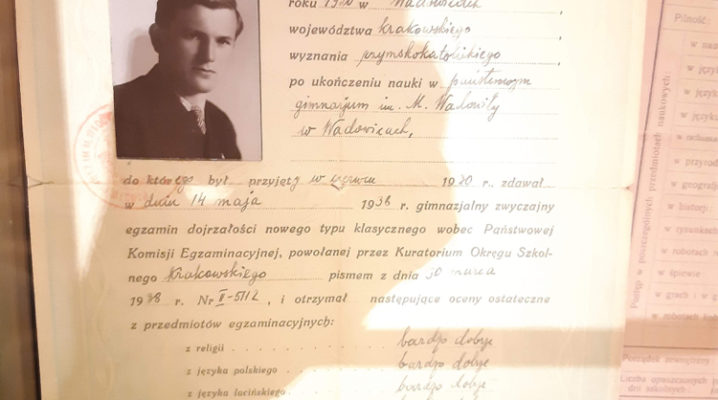 roku 1920 w Wadowicach
województwa krakowskiego
wyznania rzymskokatolickiego
po ukończeniu nauki w państwowym
gimnazjum im. M. Wadowity
w Wadowicach,
do którego był przyjęty w czerwcu 1930 r., zdawał
w dniu 14 maja 1938 r. gimnazjalny zwyczajny
egzamin dojrzałości nowego typu klasycznego wobec Państwowej
Komisji Egzaminacyjnej, powołanej przez Kuratorium Okręgu Szkol-
nego Krakowskiego pismem z dnia 30 marca
1938 r. Nr II-5112, i otrzymał następujące oceny ostateczne
z przedmiotów egzaminacyjnych:
z religii bardzo dobre
z języka polskiego bardzo dobre
z języka łacińskiego bardzo dobre
Pilność:
Postęp w poszczególnych przedmiotach naukowych:
w języku
w języku
w geografii
w historji
w rysunkach
w robotach
w śpiewie
w grach i w
w robotach
Porządek zewnętrzny
Liczba opuszczonych
dni szkolnych